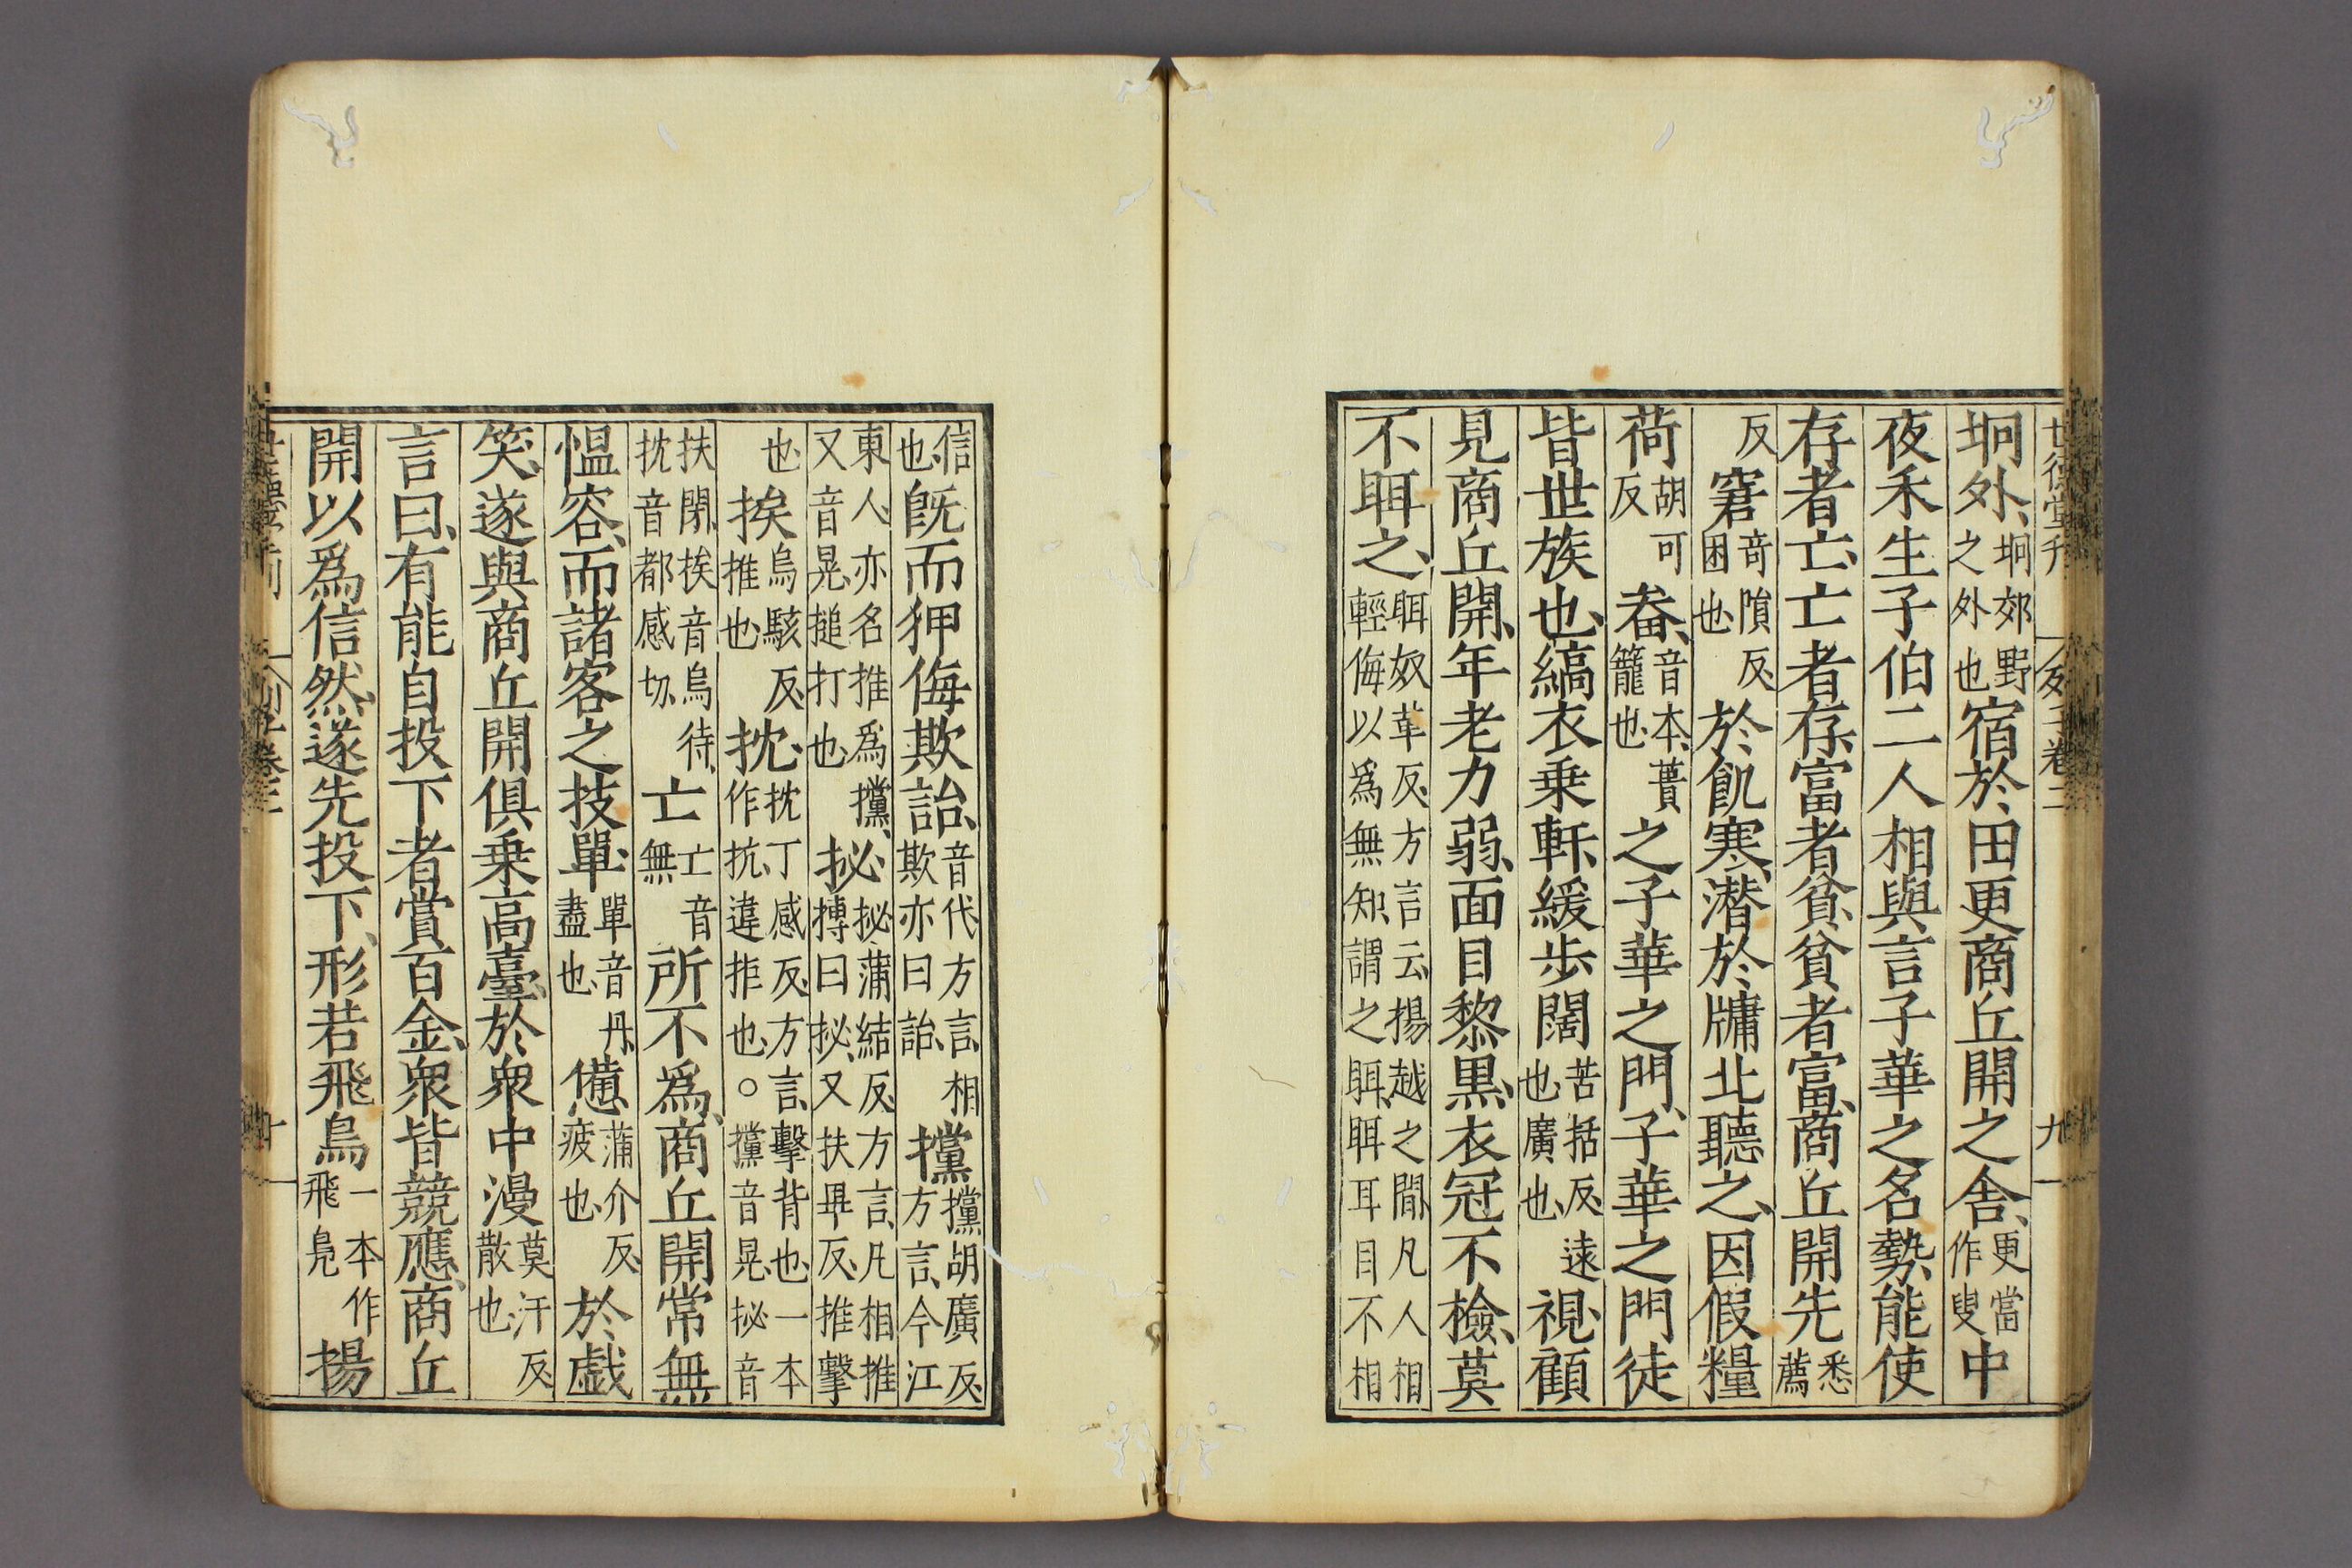 世德堂刊 列子卷二 九
坰外、坰郊野之外也宿於田更商丘開之舍、更當作叟中
夜禾生子伯二人相與言子華之名勢能使
存者亡、亡者存、富者貧、貧者富、商丘開先悉薦
反窘奇隕反困也於飢寒、潛於牖北聽之、因假糧
荷胡可反畚、音本、蕢籠也之子華之門、子華之門徒
皆世族也、縞衣乗軒、緩步闊苦括反、遠也、廣也、視、顧
見商丘開、年老力弱、面目黎黒、衣冠不檢、莫
不眲之、眲奴革反、方言云、揚越之閒、凡人相輕侮以爲無知、謂之眲、眲耳目不相
信也、旣而狎侮欺詒、音代、方言、相欺亦曰詒、攩攩胡廣反、方言、今江
東人、亦名推爲攩、又音晃、搥打也、㧙㧙、蒲結反、方言、凡相推搏曰㧙、又扶畢反、推擊
也、挨烏駭反、推也、抌、抌丁感反、方言、擊背也、一本作抗、違拒也、○攩音晃、㧙音
扶閉、挨音烏待、抌音都感切、亡亡音無所不爲、商丘開常無
慍容、而諸客之技單、單音丹、盡也、憊蒲介反、疲也、於戯
笑、遂與商丘開俱乗高臺、於衆中漫莫汗反、散也、
言曰、有能自投下者賞百金、衆皆競應、商丘
開以爲信然、遂先投下、形若飛鳥一本作飛鳧揚
卷二 十